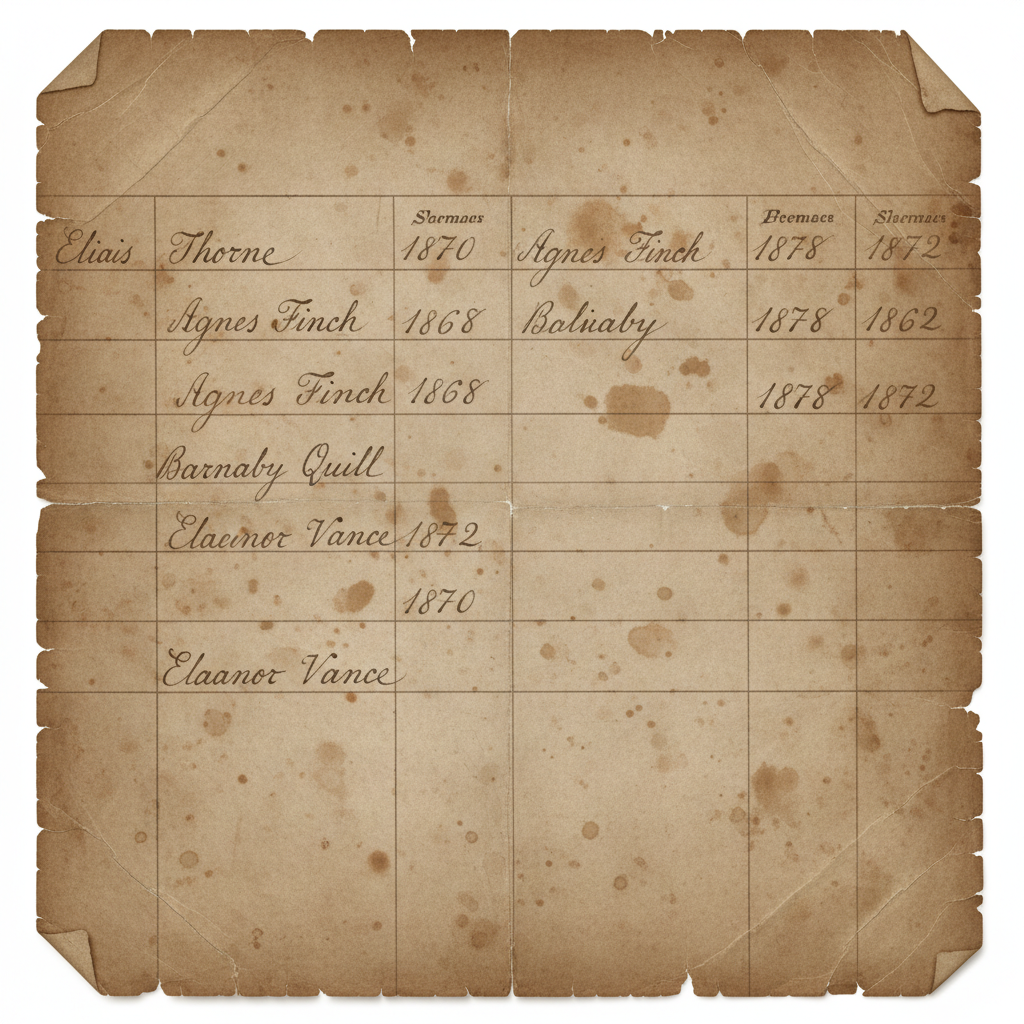 Eliais Thorne 1870 Agnes Finch 1878 1872
Agnes Finch 1868 1878 1862
Agnes Finch 1868 1878 1872
Barnaby Quill
Vance 1872
1870
Elaanor Vance